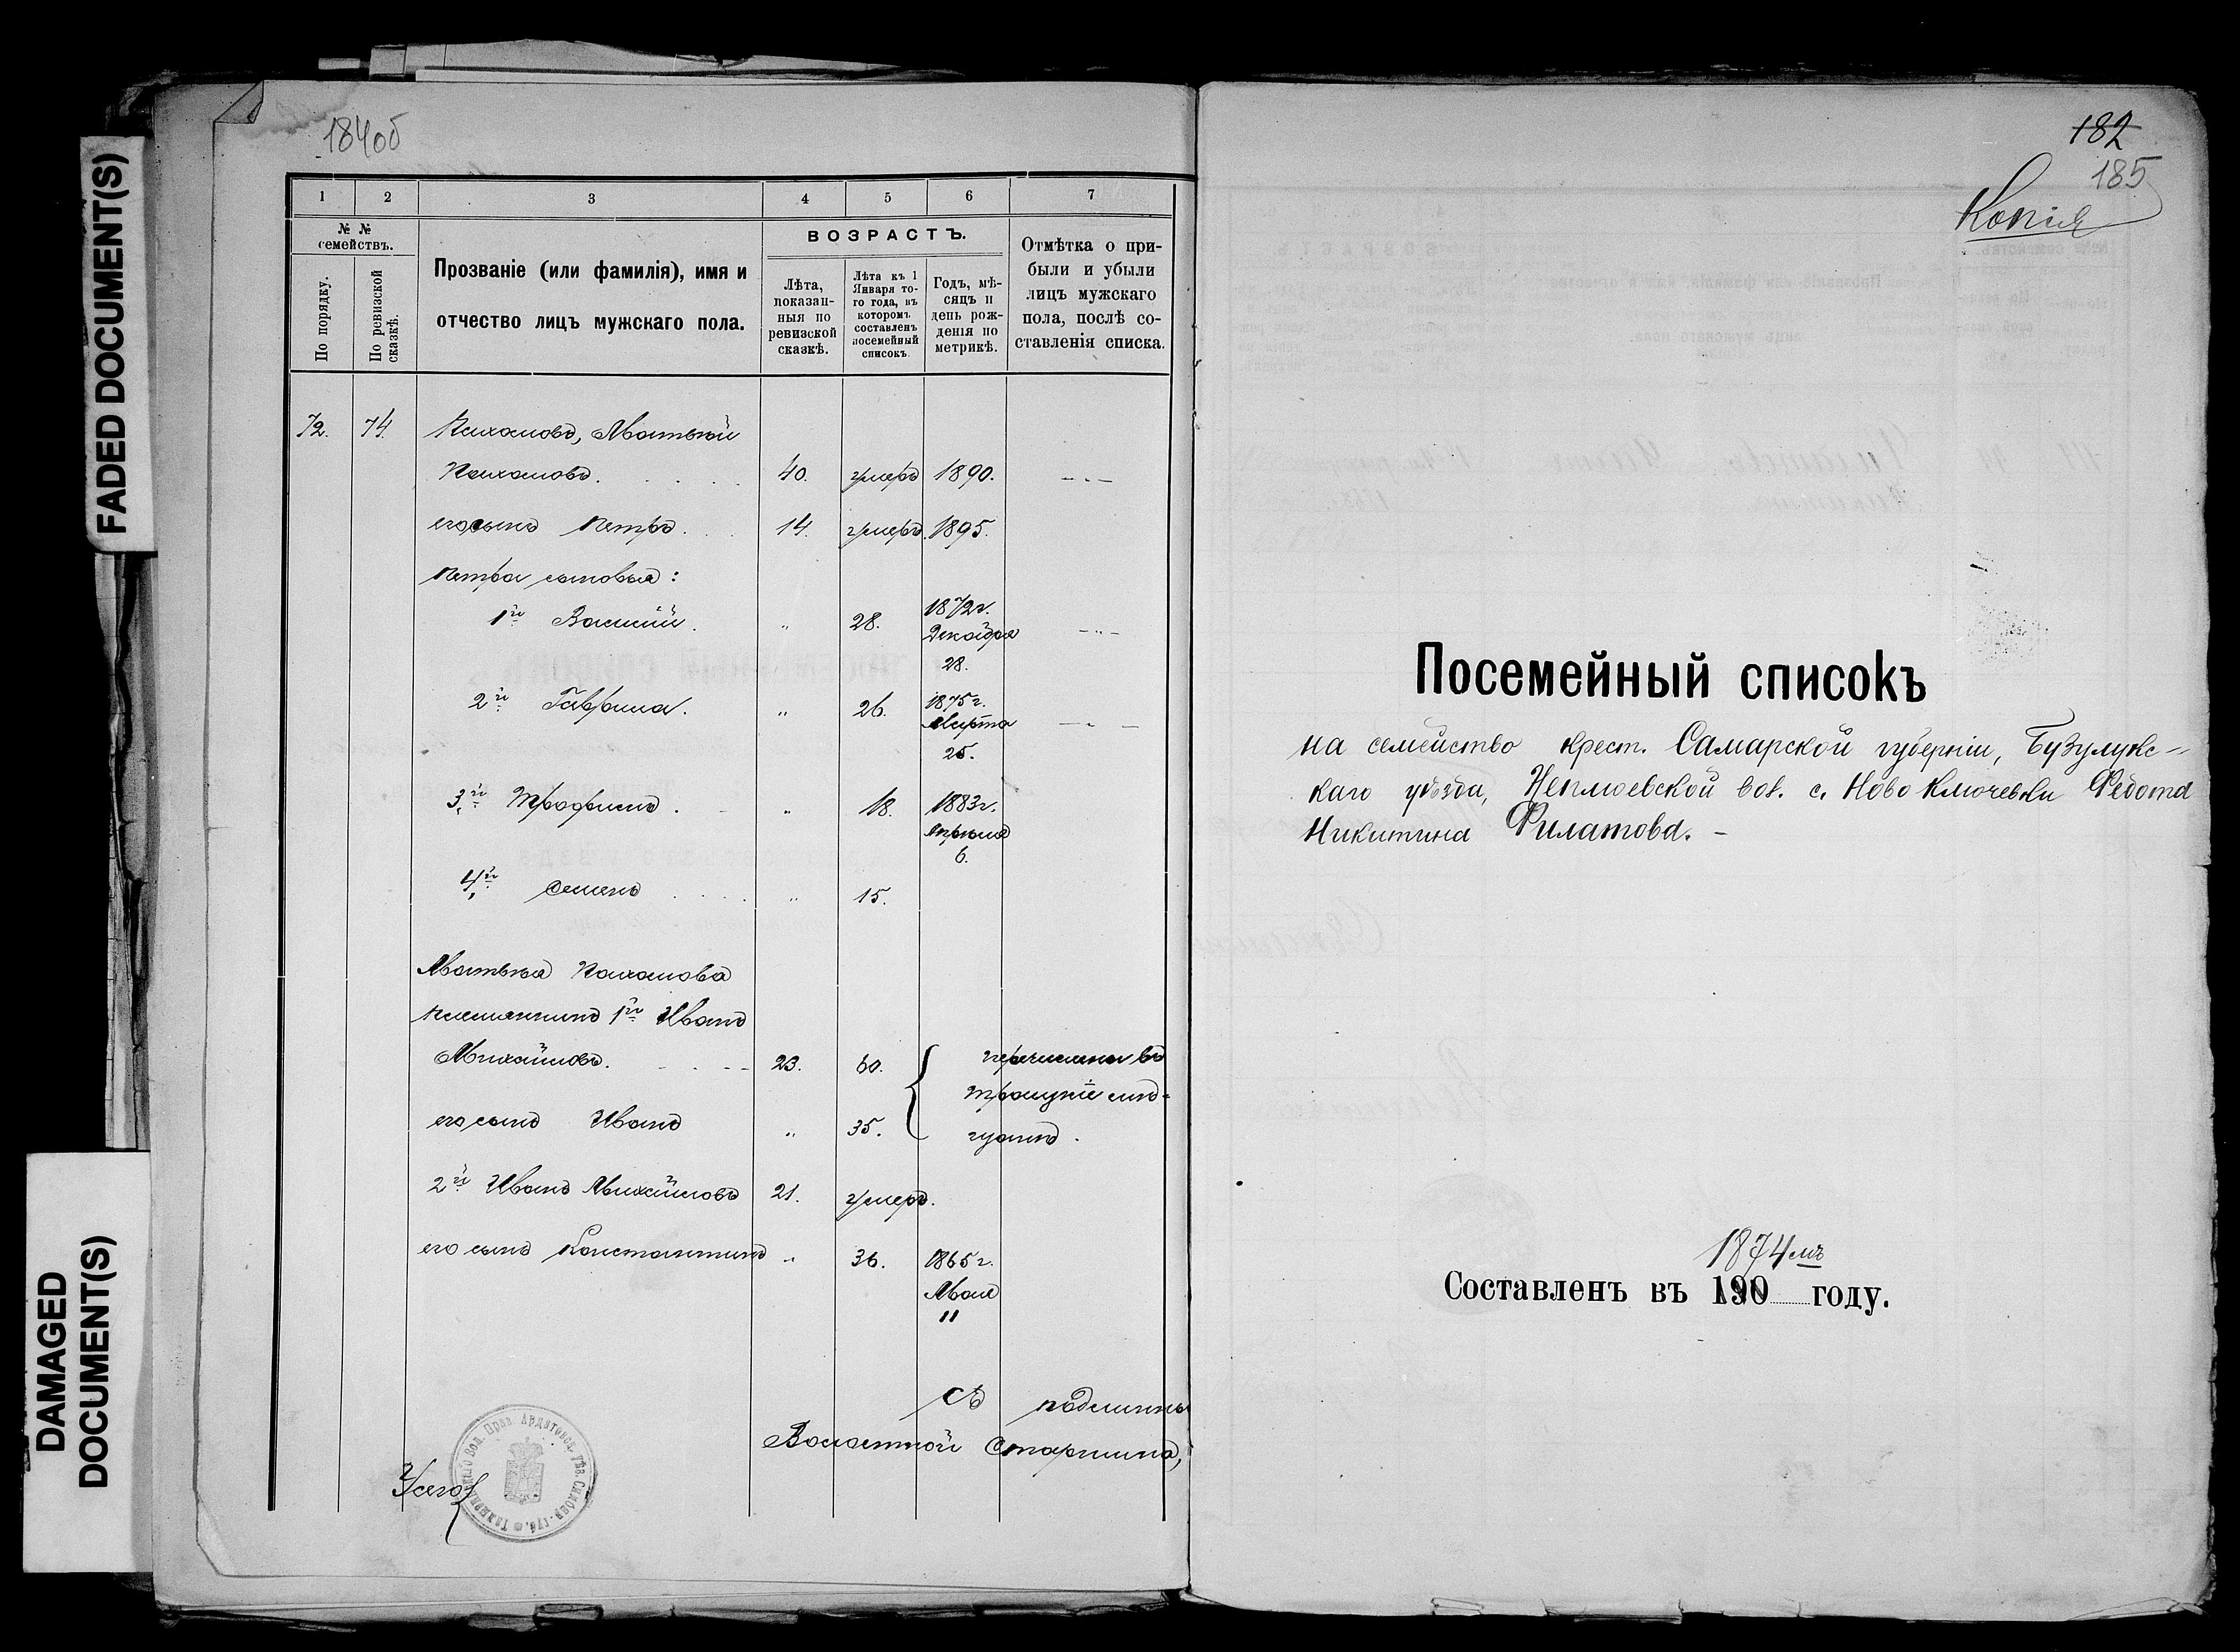 FADED DOCUMENT(S)
DAMAGED
DOCUMENT(S)
184об
1 2 3 4 5 6 7
№ №
семействъ.
По порядку.
По ревизской
сказкѣ.
Прозваніе (или фамилія), имя и
отчество лицъ мужскаго пола.
ВОЗРАСТЪ.
Лѣта,
показан-
ныя по
ревизской
сказкѣ.
Лѣта къ 1
Января то-
го года, въ
которомъ
составленъ
посемейный
списокъ.
Годъ, мѣ-
сяцъ и
день рож-
денія по
метрикѣ.
Отмѣтка о при-
были и убыли
лицъ мужскаго
пола, послѣ со-
ставленія списка.
72. 74. Матвѣй
40. умеръ 1890.
его сынъ Петръ. 14. умеръ. 1895.
Петра сыновья:
1й Василій. " 28. 1872г.
Декабря
28.
2й Гаврила. " 26. 1875г.
Марта
25.
3й Трофимъ. " 18. 1883г.
Апрѣля
6.
4й Семенъ " 15.
Матвѣя
племянникъ 1й Иванъ
Михайловъ. 23. 60. перечислены въ
его сынъ Иванъ " 35.
2й Иванъ Михайловъ 21. умеръ.
его сынъ Константинъ " 36. 1865г.
Мая
11
Съ подлинны
Волостной Старшина,
182
185
Копія
Посемейный списокъ
на семейство крест. Самарской губерніи, Бузулукс-
каго уѣзда, Неплюевской вол. с. Ново Ключевки Федота
Никитина Филатова. –
1874мъ
Составленъ въ 190 году.